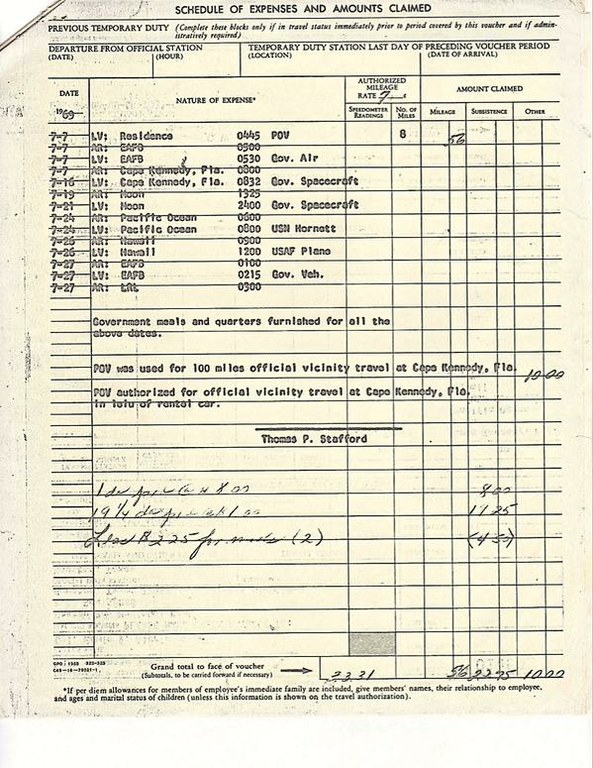 SCHEDULE OF EXPENSES AND AMOUNTS CLAIMED
PREVIOUS TEMPORARY DUTY (Complete these blocks only if in travel status immediately prior to period covered by this voucher and if administratively required)
DEPARTURE FROM OFFICIAL STATION
(DATE) (HOUR)
TEMPORARY DUTY STATION LAST DAY OF PRECEDING VOUCHER PERIOD
(LOCATION) (DATE OF ARRIVAL)
DATE
1969
NATURE OF EXPENSE*
AUTHORIZED MILEAGE RATE 7 ¢
SPEEDOMETER READINGS
NO. OF MILES
AMOUNT CLAIMED
MILEAGE SUBSISTENCE OTHER
7-7 LV: Residence 0445 POV 8 56
7-7 AR: EAFB 0500
7-7 LV: EAFB 0530 Gov. Air
7-7 AR: Cape Kennedy, Fla. 0800
7-16 LV: Cape Kennedy, Fla. 0832 Gov. Spacecraft
7-19 AR: Moon 1325
7-21 LV: Moon 2400 Gov. Spacecraft
7-24 AR: Pacific Ocean 0600
7-24 LV: Pacific Ocean 0800 USN Hornett
7-26 AR: Hawaii 0900
7-26 LV: Hawaii 1200 USAF Plane
7-27 AR: EAFB 0100
7-27 LV: EAFB 0215 Gov. Veh.
7-27 AR: LRL 0300
Government meals and quarters furnished for all the
above dates.
POV was used for 100 miles official vicinity travel at Cape Kennedy, Fla. 10.00
POV authorized for official vicinity travel at Cape Kennedy, Fla.
in leiu of rental car.
Thomas P. Stafford
1 8.00
19 1/4 1.00
Less $2.25 for (2)
GPO : 1963
Grand total to face of voucher
(Subtotals, to be carried forward if necessary)
→ 56 10.00
*If per diem allowances for members of employee's immediate family are included, give members' names, their relationship to employee,
and ages and marital status of children (unless this information is shown on the travel authorization).